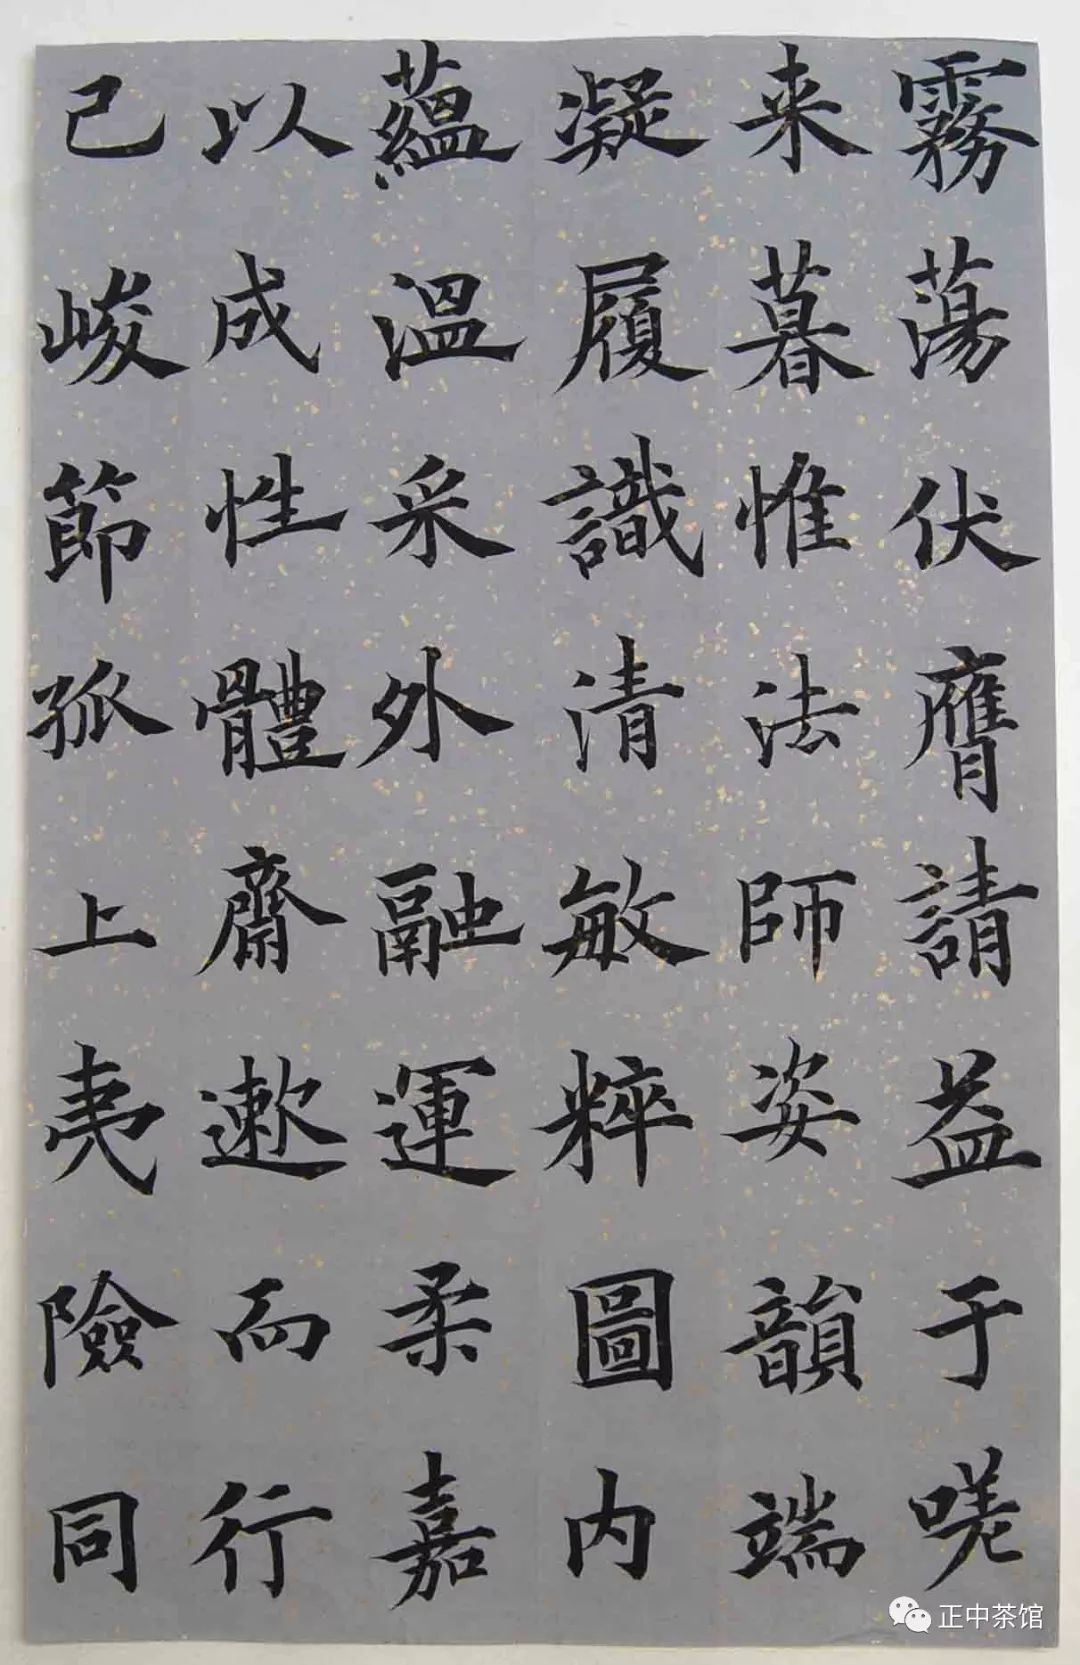 霧蕩伏膺請益于嗟
来暮惟法師姿韻端
凝履識清敏粹圖内
蘊温采外融運柔嘉
以成性體齋遬而行
己峻節孤上夷險同
正中茶馆